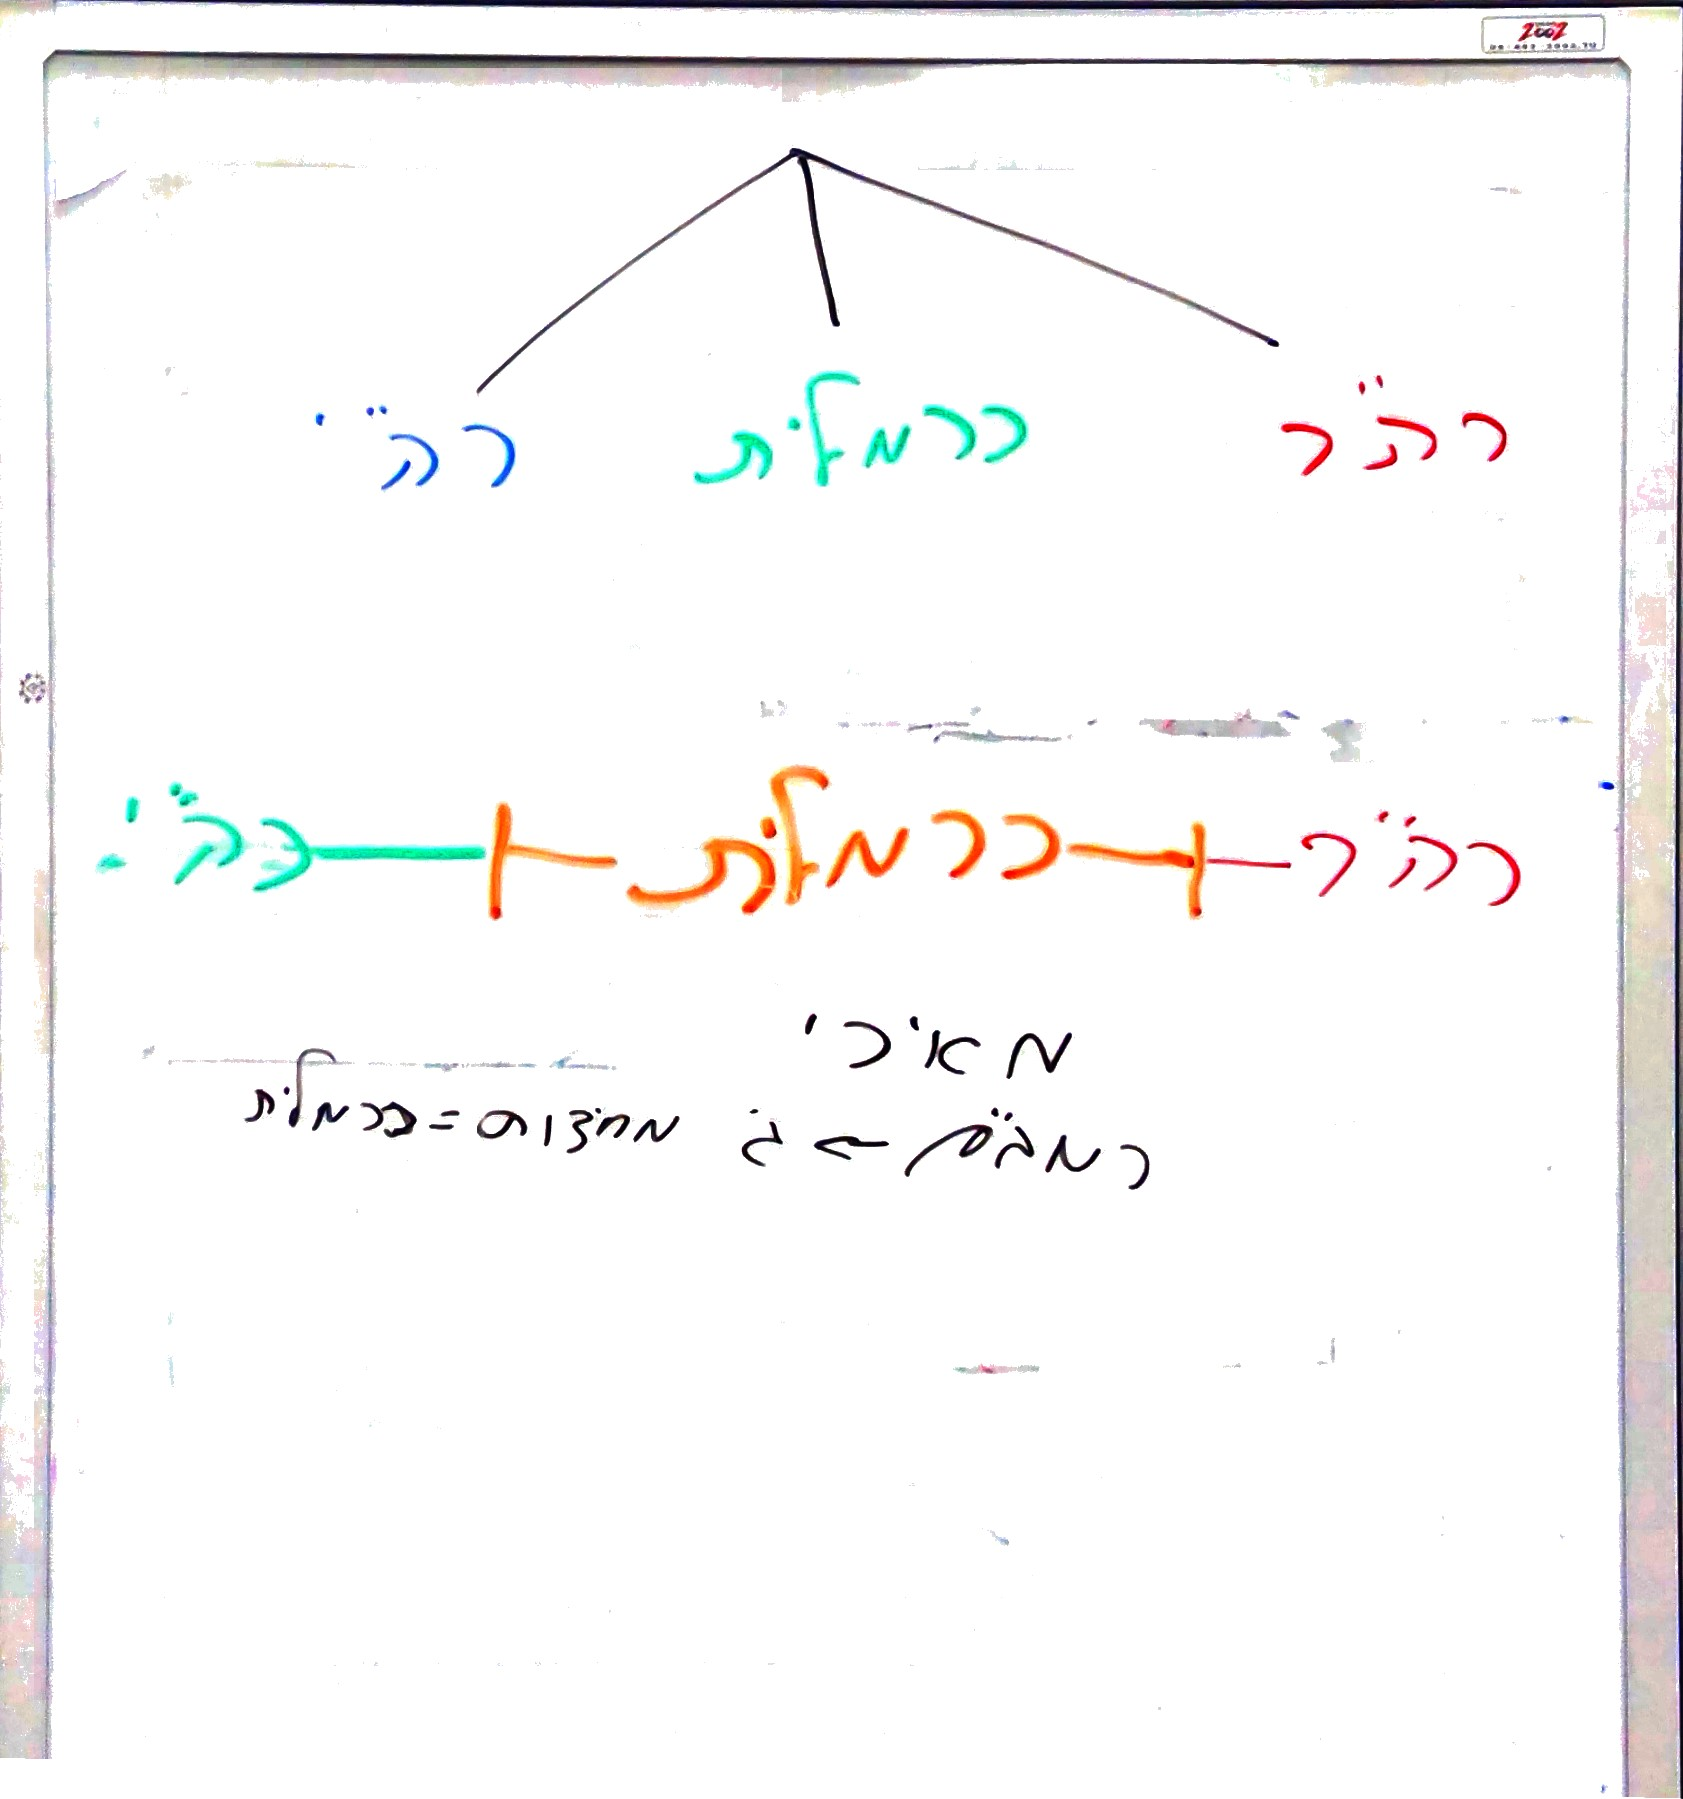 2002
רה"ר כרמלית רה"י
רה"ר כרמלית רה"י
מאירי
רמב"ם ← ג' מחיצות = כרמלית